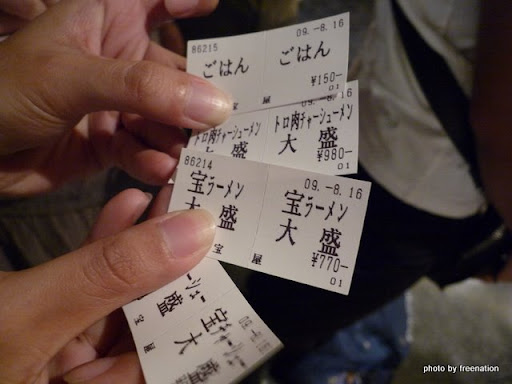 86215 09.-8.16
ごはん ごはん
¥150-
01
09.-8.16
トロ肉チャーシューメン トロ肉チャーシューメン
大盛 大盛
¥980-
01
86214 09.-8.16
宝ラーメン 宝ラーメン
大盛 大盛
¥770-
01
宝
大
盛
photo by freenation